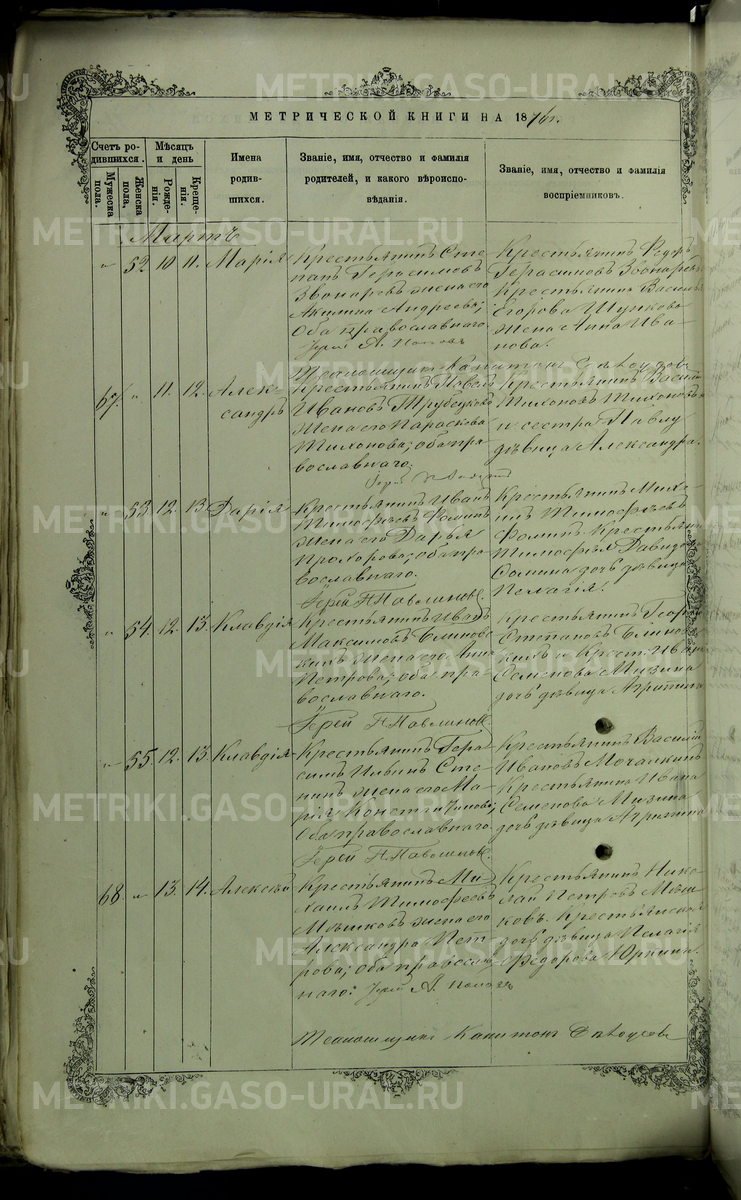 МЕТРИЧЕСКОЙ КНИГИ НА 1876 г.
Счетъ ро-
дившихся.
Мужеска
пола.
Женска
пола.
Мѣсяцъ
и день
Рожде-
нія.
Креще-
нія.
Имена
родив-
шихся.
Званіе, имя, отчество и фамилія
родителей, и какого вѣроиспо-
вѣданія.
Званіе, имя, отчество и фамилія
воспріемниковъ.
Мартъ
" 52. 10 11. Марія
Крестьянинъ Сте-
панъ Герасимовъ
Звонаревъ жена его
Акилина Андреева;
Оба православнаго.
Іерей А. Поповъ
Крестьянинъ Ѳедоръ
Герасимовъ Звонаревъ
Крестьянина Василія
Егорова Шункова
жена Анна Ива-
нова.
Псаломщикъ Капитонъ
67. " 11. 12. Алек-
сандръ
Крестьянинъ Павелъ
Ивановъ Трубецковъ
жена его Параскева
Тихонова; оба пра-
вославнаго.
Крестьянинъ Василій
Тихоновъ Тихоновъ
и сестра Павлу
дѣвица Александра.
" 53. 12. 13. Дарія
Крестьянинъ Иванъ
Тимофѣевъ Фоминъ
жена его Дарья
Прохорова; оба пра-
вославнаго.
Іерей Н Павлиновъ.
Крестьянинъ Миха-
илъ Тимофѣевъ
Фоминъ Крестьянина
Тимофѣя Давидова
Сомина дочь дѣвица
Пелагія.
" 54. 12. 13. Клавдія
Крестьянинъ Иванъ
Максимовъ Блинов-
жена его Анна
Петрова; оба пра-
вославнаго.
Іерей Н Павлиновъ.
Крестьянинъ Георгій
Степановъ Блинов-
и Крест: Ивана
Семенова Мизина
дочь дѣвица Агрипина
" 55. 12. 13. Клавдія
Крестьянинъ Гера-
симъ Ильинъ Сте-
нинъ жена его Ма-
рія Константинова;
Оба православнаго.
Іерей Н Павлиновъ.
Крестьянинъ Василій
Ивановъ Мочалкинъ
Крестьянина Ивана
Семенова Мизина
дочь дѣвица Агрипина
68. " 13. 14. Алексѣй
Крестьянинъ Ми-
хаилъ Тимофеевъ
Мѣшковъ жена его
Александра Пет-
рова; оба православ-
наго: Іерей А. Поповъ
Крестьянинъ Нико-
лай Петровъ Мѣш-
ковъ. Крестьянская
дочь дѣвица Пелагія
Ѳедорова Юркина.
Псаломщикъ Капитонъ
METRIKI.GASO-URAL.RU